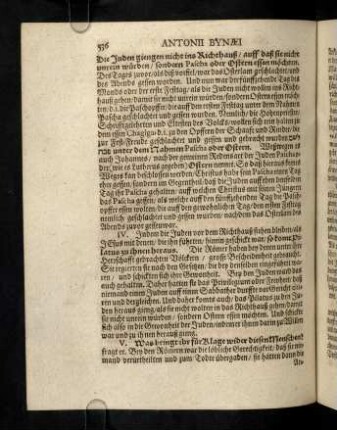 536 ANTONII BYNÆI
Die Juden giengen nicht ins Richthauß / auff daß sie nicht
unrein würden / sondern Pascha oder Ostern essen möchten.
Des Tages zuvor / als diß vorfiel / war das Osterlam geschlachtet / und
des Abends gessen worden. Und nun war der funffzehende Tag des
Monds oder der erste Festtag / als die Juden nicht wollen ins Richt-
hauß gehen / damit sie nicht unrein würden / sondern Ostern essen möch-
ten / d.i. die Paschopffer / die auff dem ersten Festtag unter dem Nahmen
Pascha geschlachtet und gessen wurden. Nemlich / die Hohenpriester /
Schrifftgelehrten und Eltesten des Volcks wollen sich rein halten zu
dem essen Chagigus d.i. zu den Opffern der Schaafe und Rinder / die
zur Fest-Freude geschlachtet und gessen und gebracht wurden
unter dem Nahmen Pascha oder Ostern. Weßwegen es
auch Johannes / nach der gewonen Redensart der Juden Pascha
oder / wie es Lutherus gegeben / Ostern nennet. So daß hieraus keines
Weges kan beschlossen werden / Christus habe sein Pascha einen Tag
eher gessen / sondern im Gegentheil / daß die Juden auff eben denselben
Tag ihr Pascha gehalten / auff welchen Christus mit seinen Jüngern
das Pascha gessen; als welche auff den funffzehenden Tag die Pasch-
opffer essen wolten / die auff den gewöhnlichen Tag des ersten Festtag
nemlich geschlachtet und gessen wurden / nachdem das Osterlam des
Abends zuvor gessen war.
IV. Indem die Juden vor dem Richthauß stehen blieben / als
JEsus mit denen / die ihn führten / hinein geschickt war / so kompt Pi-
latus zu ihnen heraus. Die Römer haben bey denen unter ihre
Herrschafft gebrachten Völckern / grosse Bescheidenheit gebraucht.
Sie regierten sie nach den Gesetzen / die bey denselben eingeführet wa-
ren / und schickten sich in ihre Gewonheit. Bey den Juden ward das
auch gehalten. Daher hatten sie das Privilegium oder Freyheit / daß
niemand einen Juden auff einen Sabbather durffte vors Gericht ci-
ren und dergleichen. Und daher komts auch / das Pilatus zu den Ju-
den heraus gieng / als sie nicht wolten in das Richthauß gehen / damit
sie nicht unrein würden / sondern Ostern essen möchten. Und schickte
sich also in die Gewonheit der Juden / indem er ihnen darin zu Willen
war und zu ihnen heraus gieng.
V. Was bringt ihr für Klage wider diesen Menschen?
fragt er. Bey den Römern war die löbliche Gerechtigkeit / daß sie nie-
mand verurtheilten und zum Tode übergaben / sie hätten dann die